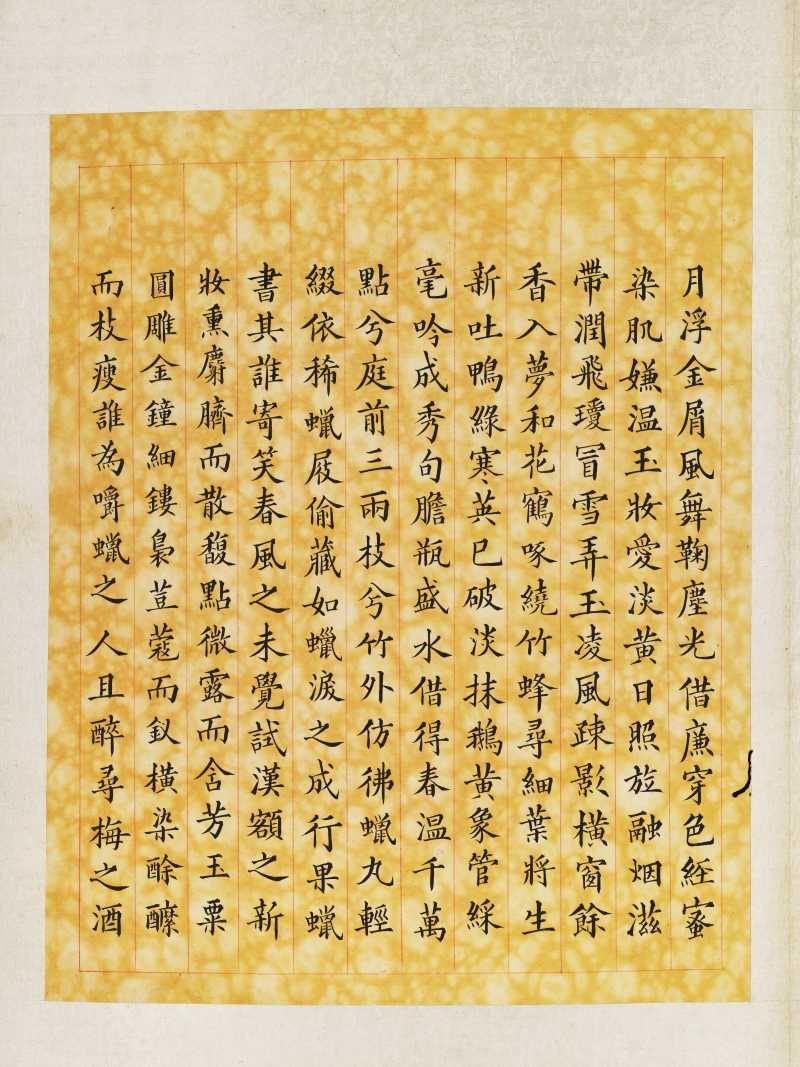 月浮金屑風舞鞠塵光借簾穿色經蜜
染肌嫌温玉妝愛淡黃日照旋融烟滋
帶潤飛瓊冒雪弄玉凌風疎影橫窗餘
香入夢和花鶴啄繞竹蜂尋細葉將生
新吐鴨綠寒英已破淡抹鵝黃象管綵
毫吟成秀句膽瓶盛水借得春温千萬
點兮庭前三兩枝兮竹外仿彿蠟丸輕
綴依稀蠟屐偷藏如蠟淚之成行果蠟
書其誰寄笑春風之未覺試漢額之新
妝熏麝臍而散馥點微露而含芳玉粟
圓雕金鐘細鏤梟荳蔻而釵橫染酴醾
而枝瘦誰為嚼蠟之人且醉尋梅之酒